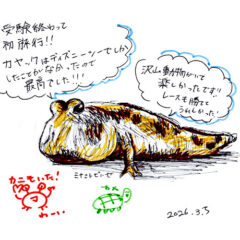 受験終わって
初旅行!!
カヤックはディズニーシーでしか
したことがなかったので
最高でした!!!
沢山動物がいて
楽しかったです!!
レースも勝てて
うれしかった!
ミナミトビハゼ
カニもいた!
わーい。
カメ
2026.3.5